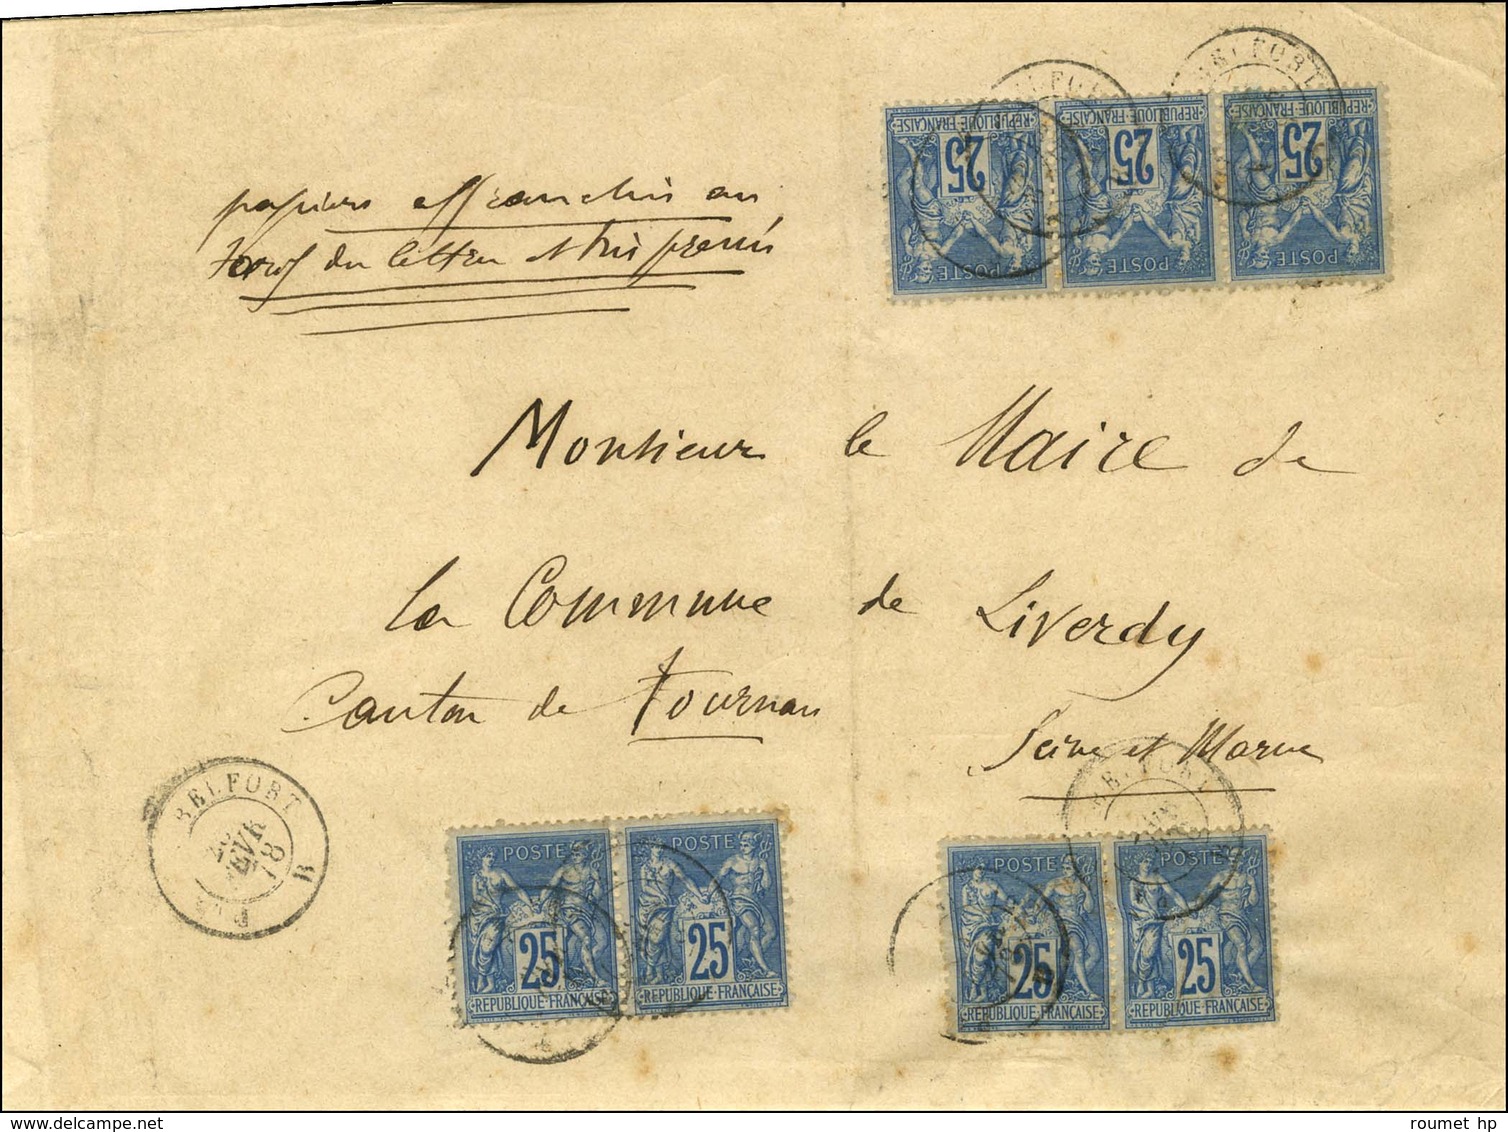 BELFORT
BELFORT
25 25 25
REPUBLIQUE FRANÇAISE REPUBLIQUE FRANÇAISE REPUBLIQUE FRANÇAISE
POSTE POSTE POSTE
papiers affranchis au
tarif du lettre et très pressés
Monsieur le Maire de
la Commune de Liverdy
Canton de Tournan
Seine et Marne
BELFORT
FEVR
78
B
BELFORT
POSTE POSTE
25 25
REPUBLIQUE FRANÇAISE REPUBLIQUE FRANÇAISE
POSTE POSTE
25 25
REPUBLIQUE FRANÇAISE REPUBLIQUE FRANÇAISE
roumet hp